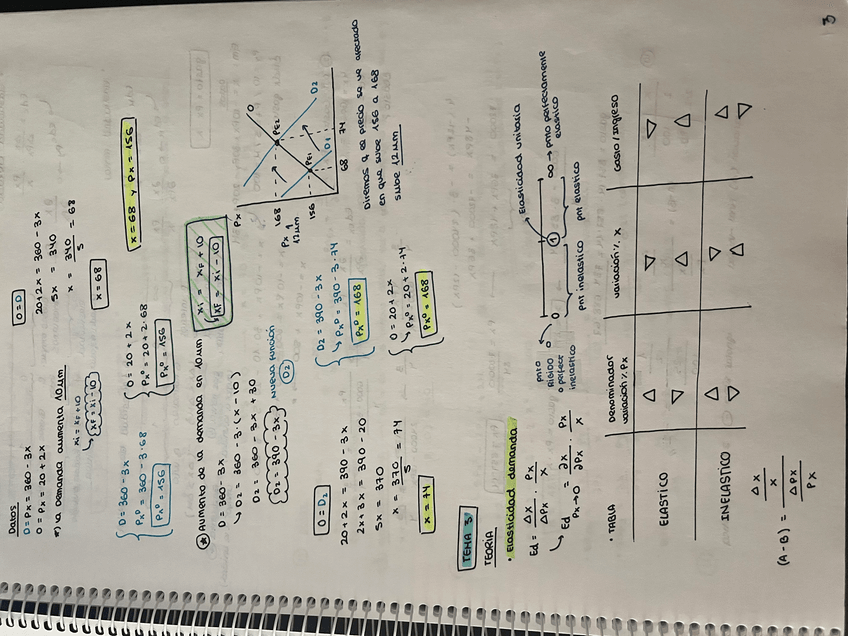 Datos
D = Px = 360 - 3x
O = Px = 20 + 2x
*) la Demanda aumenta 10µm
xi = xF + 10
↳ xF = xi - 10
O = D
20 + 2x = 360 - 3x
5x = 340
x = 340/5 = 68
x = 68
D = 360 - 3x
Px⁰ = 360 - 3·68
Px⁰ = 156
O = 20 + 2x
Px⁰ = 20 + 2·68
Px⁰ = 156
x = 68 y Px = 156
* Aumento de la demanda en 10µm
xi = xF + 10
xF = xi - 10
D = 360 - 3x
↳ D2 = 360 - 3·(x - 10)
D2 = 360 - 3x + 30
D2 = 390 - 3x
Nueva función
D2
Px
O
D2
D1
PE2
PE1
168
156
Px ↑
12µm
68
74
O = D2
20 + 2x = 390 - 3x
2x + 3x = 390 - 20
5x = 370
x = 370/5 = 74
x = 74
D2 = 390 - 3x
↳ Px⁰ = 390 - 3·74
Px⁰ = 168
O = 20 + 2x
↳ Px⁰ = 20 + 2·74
Px⁰ = 168
Diremos q el precio se ve afectado
en que sube 156 a 168
sube 12µm
TEMA 3
TEORIA
· Elasticidad demanda
Ed = Δx/ΔPx · Px/x
↳ Ed Px→0 = ∂x/∂Px · Px/x
pnto
RÍGIDO
o perfect
inelastico
0
0
1
Elasticidad unitaria
∞ → pnto perfectamente
elastico
pnt inelastico
pnt elastico
· TABLA
Denominador
variación % Px
variación % x
Gasto / Ingreso
ELASTICO
△ ▽ ▽
▽ △ △
INELASTICO
△ ▽ △
▽ △ ▽
(A - B) = Δx/x / ΔPx/Px
3